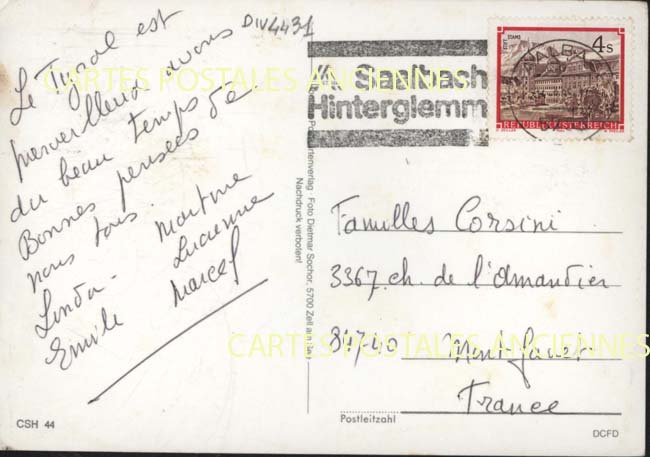 DIV4431
Le Tyrol est
merveilleux avons
du beau temps
Bonnes pensées de
nous tous.
Linda - Martine
Emile Lucienne
Marcel
CARTES POSTALES ANCIENNES
Saalbach
Hinterglemm
STIFT STAMS
4 S
REPUBLIK ÖSTERREICH
Familles Corsini
3367 ch. de l'Amandier
CARTES POSTALES ANCIENNES
France
Postleitzahl
CSH 44
DCFD
Foto Dietmar Sochor, 5700 Zell am See
Nachdruck verboten!